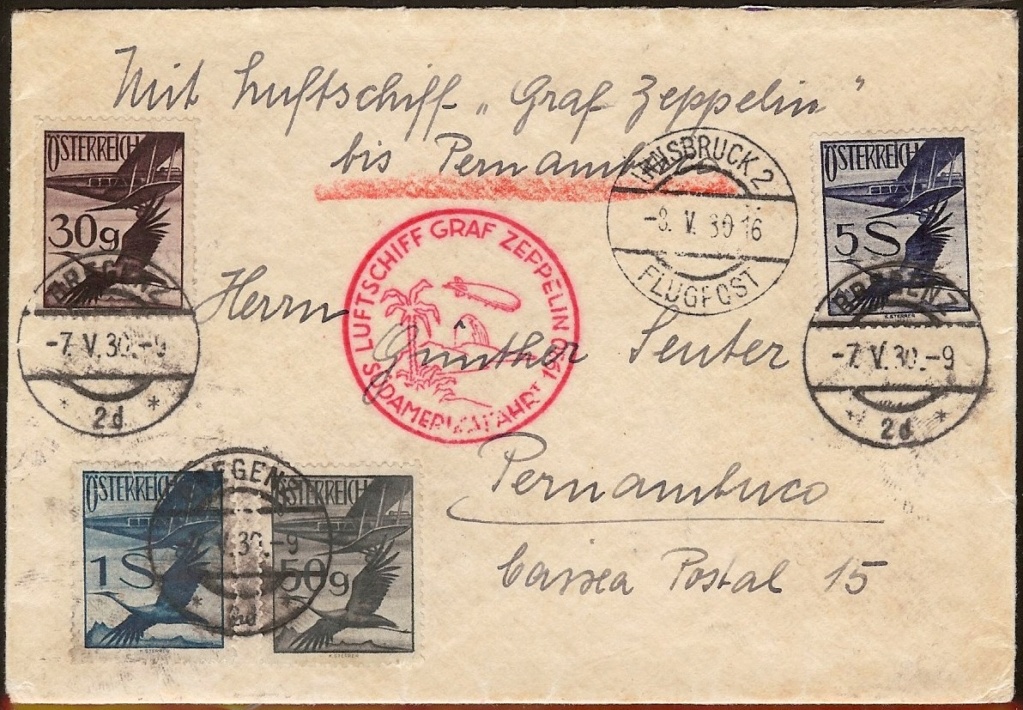 Mit Luftschiff „Graf Zeppelin"
bis Pernambuco
ÖSTERREICH
30g
INNSBRUCK 2
-8. V. 30 16
FLUGPOST
ÖSTERREICH
5S
LUFTSCHIFF GRAF ZEPPELIN
SÜDAMERIKAFAHRT 1930
BREGENZ
-7. V. 30.-9
* 2d *
BREGENZ
-7. V. 30.-9
* 2d *
Herrn
Günther Seuter
Pernambuco
Caixa Postal 15
ÖSTERREICH
1S
ÖSTERREICH
50g
BREGENZ
V. 30.-9
* 2d *